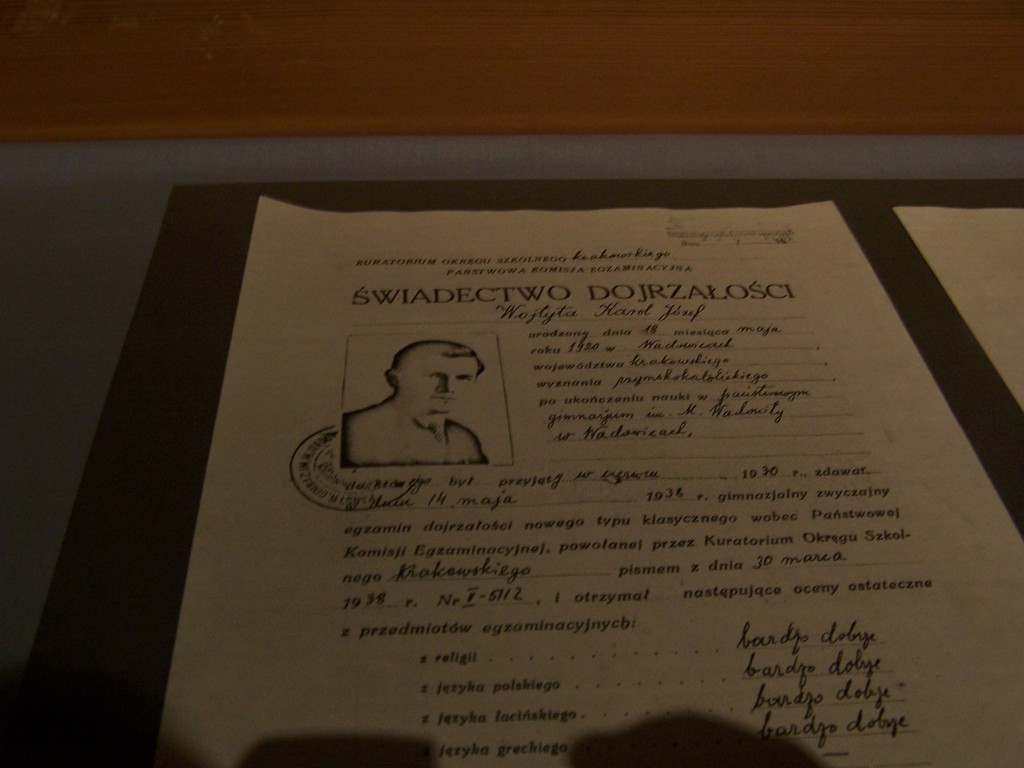 KURATORIUM OKRĘGU SZKOLNEGO krakowskiego
PAŃSTWOWA KOMISJA EGZAMINACYJNA
ŚWIADECTWO DOJRZAŁOŚCI
Wojtyła Karol Józef
urodzony dnia 18 miesiąca maja
roku 1920 w Wadowicach
województwa krakowskiego
wyznania rzymskokatolickiego
po ukończeniu nauki w państwowym
gimnazjum im. M. Wadowity
w Wadowicach,
do był przyjęty w czerwcu 1930 r., zdawał
w dniu 14 maja 1938 r. gimnazjalny zwyczajny
egzamin dojrzałości nowego typu klasycznego wobec Państwowej
Komisji Egzaminacyjnej, powołanej przez Kuratorium Okręgu Szkol-
nego Krakowskiego pismem z dnia 30 marca
1938 r. Nr II-5112, i otrzymał następujące oceny ostateczne
z przedmiotów egzaminacyjnych:
z religii . . . . . . . . . . bardzo dobrze
z języka polskiego . . . . . . bardzo dobrze
z języka łacińskiego . . . . . bardzo dobrze
z języka greckiego bardzo dobrze